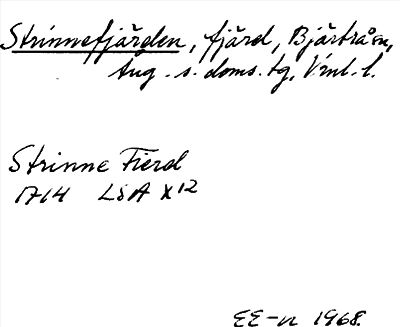 Strinnefjärden, fjärd, Bjärtrå sn,
Ång. s. doms. tg, Vrnl. l.
Strinne Fierd
1714 LSA X12
EE-n 1968.